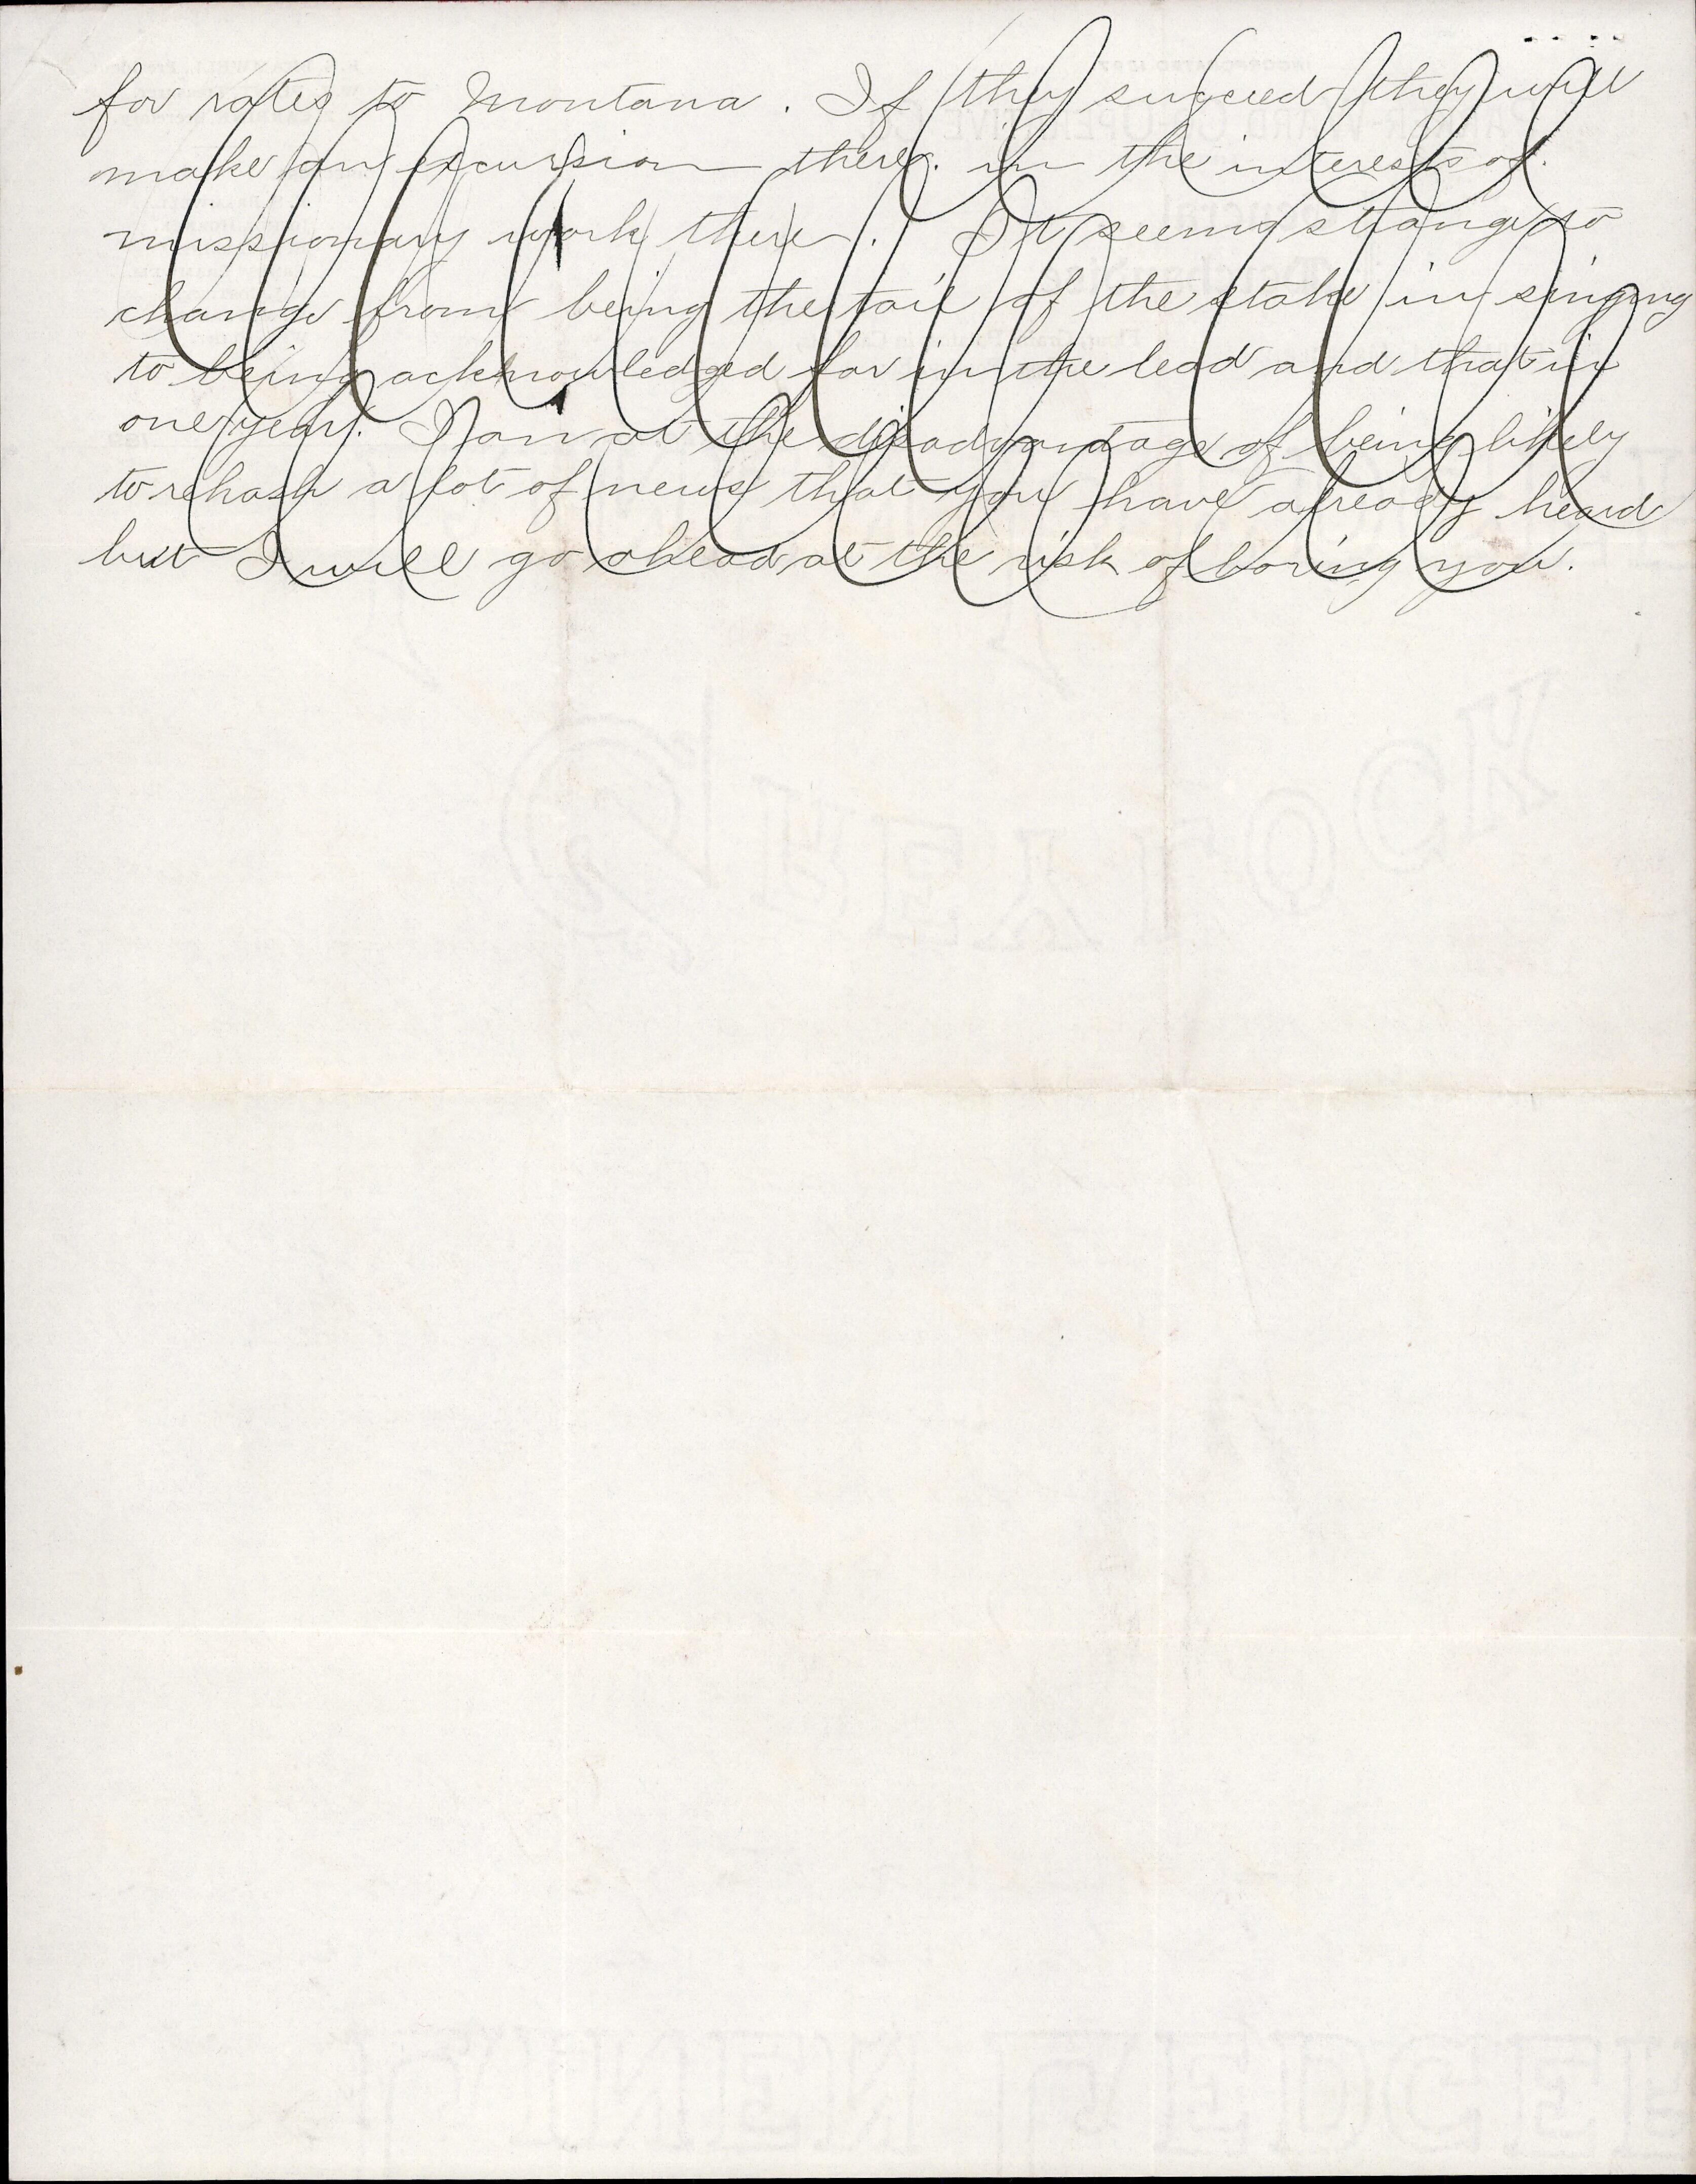 for rates to Montana. If they succeed they will
make an excursion there. in the interests of.
missionary work there. It seems strange to
change from being the tail of the stake in singing
to being acknowledged far in the lead and that in
one year. I am at the disadvantage of being likely
to rehash a lot of news that you have already heard
but I will go ahead at the risk of boring you.